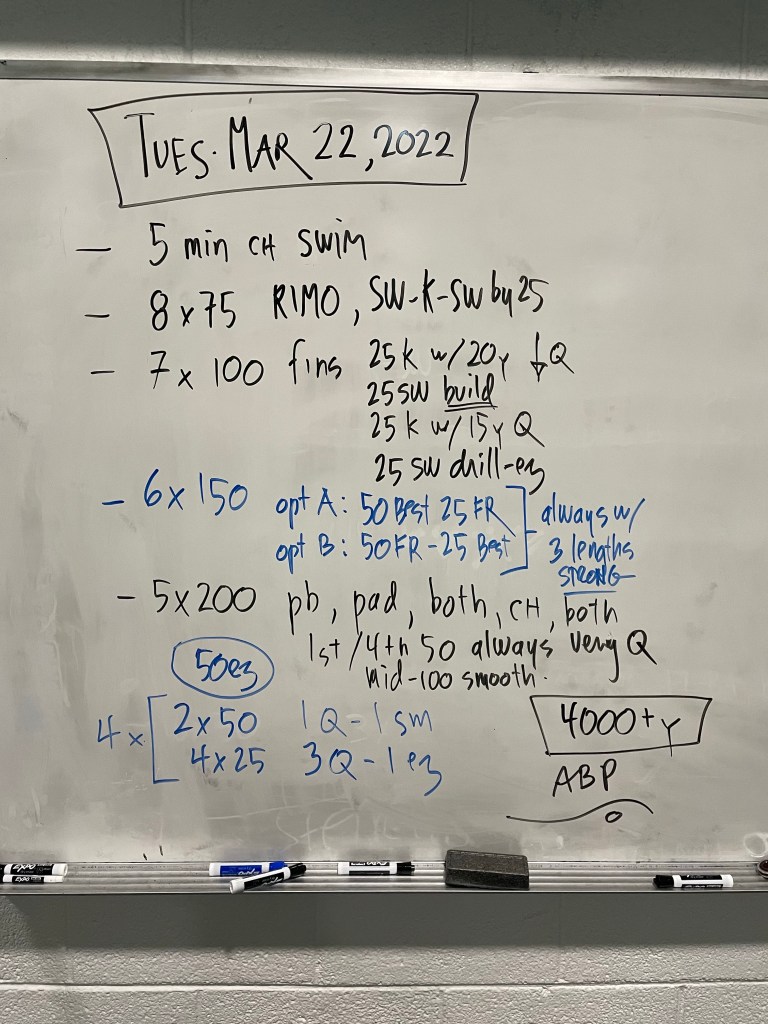 TUES. MAR 22, 2022
— 5 min CH SWIM
— 8 x 75 RIMO, SW-K-SW by 25
— 7 x 100 fins 25 k w/ 20y ↓Q
25 SW build
25 k w/ 15y Q
25 SW drill-ez
— 6 x 150 opt A: 50 Best 25 FR
opt B: 50 FR - 25 Best
always w/
3 lengths
STRONG
— 5 x 200 pb, pad, both, CH, both
1st/4th 50 always very Q
Mid-100 smooth.
50ez
4 x [ 2 x 50 1Q - 1 sm
4 x 25 3Q - 1 ez
4000+y
ABP
EXPO
EXPO